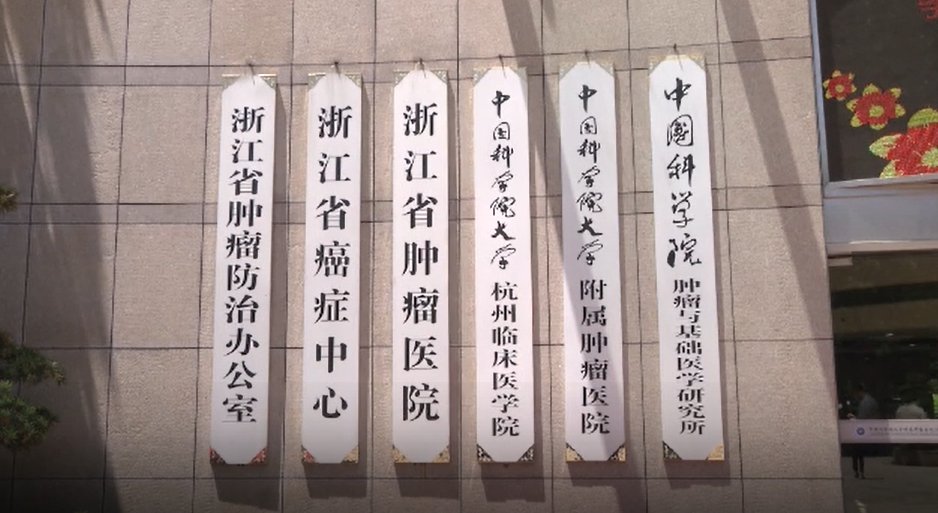 浙江省肿瘤防治办公室
浙江省癌症中心
浙江省肿瘤医院
中国科学院大学杭州临床医学院
中国科学院大学附属肿瘤医院
中国科学院肿瘤与基础医学研究所